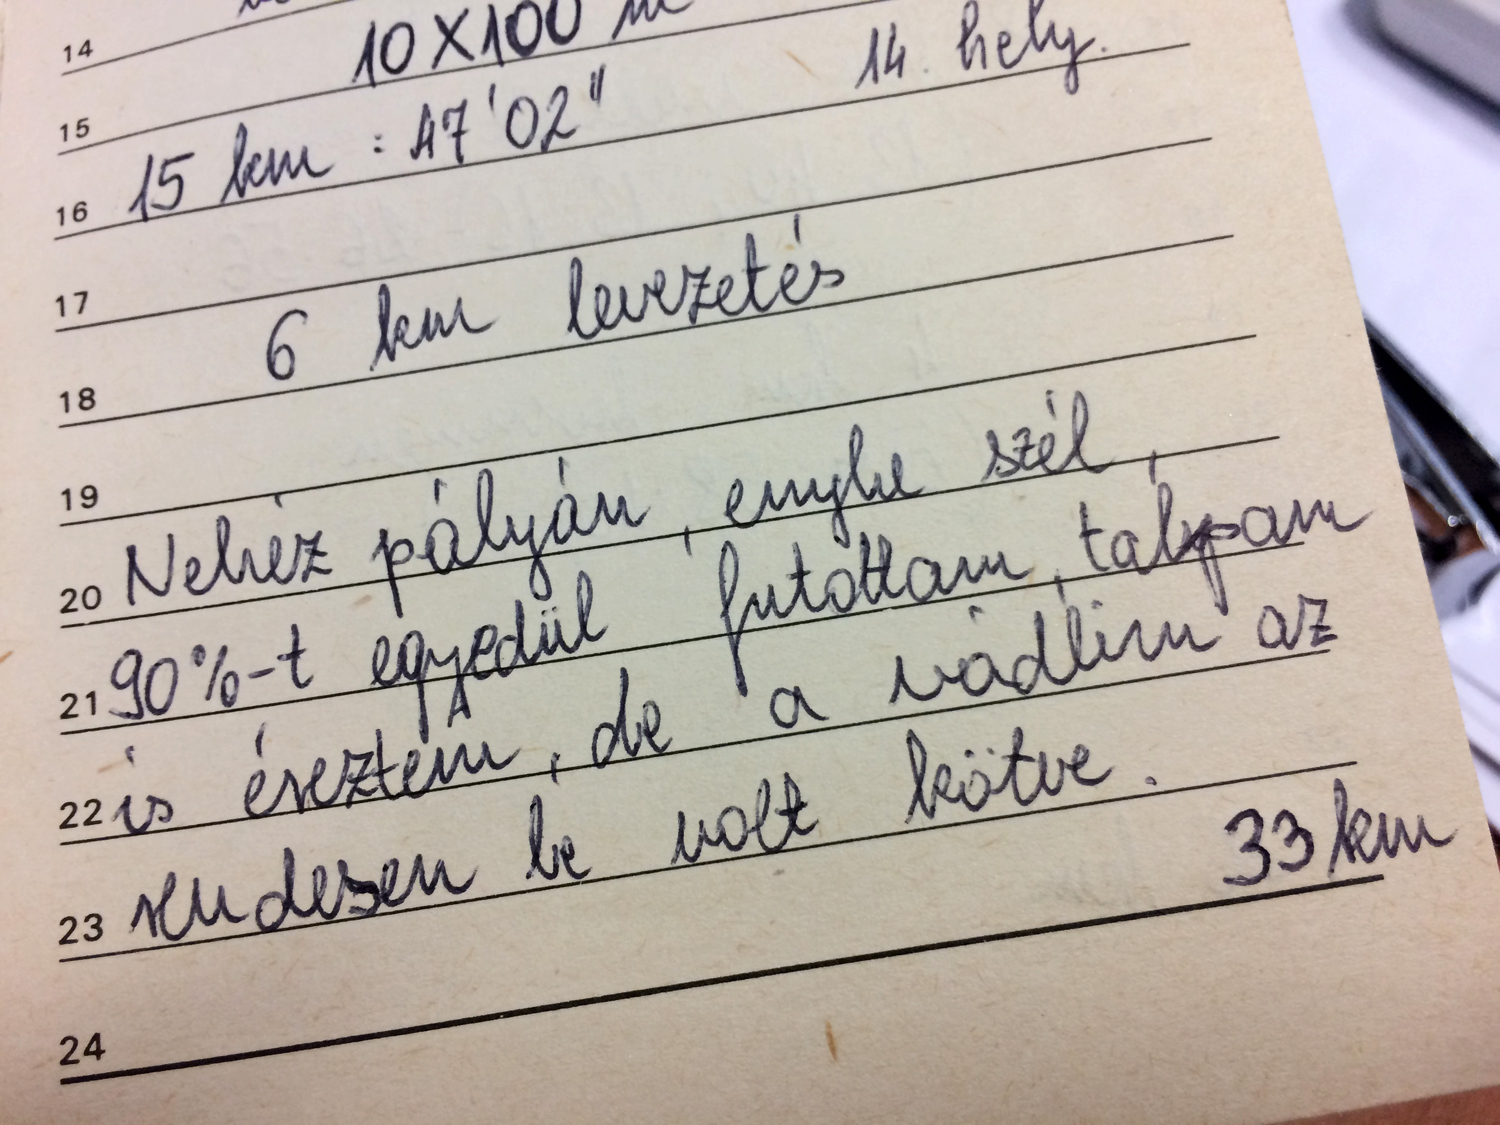 14
10X100 m
15
15 km : 47'02" 14. hely.
16
17
6 km levezetés
18
19
Nehéz pályán, enyhe szél,
20
90%-t egyedül futottam, talpam
21
is éreztem, de a vádlim az
22
rendesen be volt kötve.
23
33 km
24